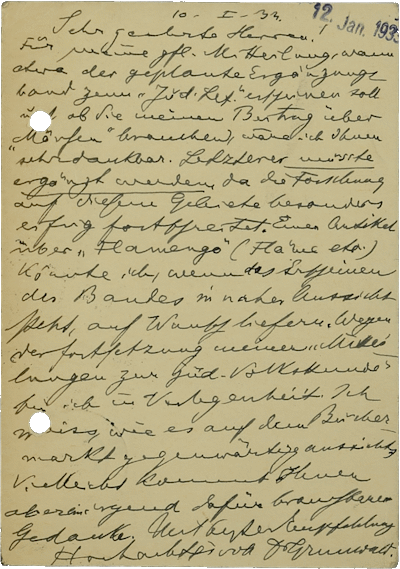 10. I. 33.
12. Jan. 193
Sehr geehrte Herren!
Für eine gfl. Mitteilung, wann
etwa der geplante Ergänzungs
band zum "Jüd. Lex." erscheinen soll
und ob Sie meinen Beitrag über
"Märchen" brauchen, wäre ich Ihnen
sehr dankbar. Letzterer müsste
ergänzt werden, da die Forschung
auf diesem Gebiete besonders
eifrig fortschreitet. Einen Artikel
über "Flamengo" (
könnte ich, wenn das Erscheinen
des Bandes in naher Aussicht
steht, auf Wunsch liefern. Wegen
der Fortsetzung meiner "Mittei
lungen zur Jüd. Volkskunde"
bin ich in Verlegenheit. Ich
weiss, wie es auf dem Bücher
markt gegenwärtig aussieht.
Vielleicht kommt Ihnen
aber irgend dafür brauchbarer
Gedanke. Mit bester Empfehlung
Hochachtungsvoll Dr Grunwald.